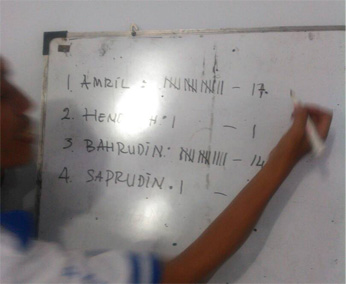 1. AMRIL : 𝍸𝍸𝍸|| - 17
2. HEN H : | - 1
3. BAHRUDIN : 𝍸𝍸|||| - 14
4. SAPRUDIN : | -